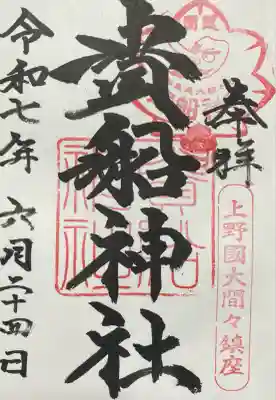 奉拝
上野國大間々鎮座
貴船神社
令和七年 六月二十四日